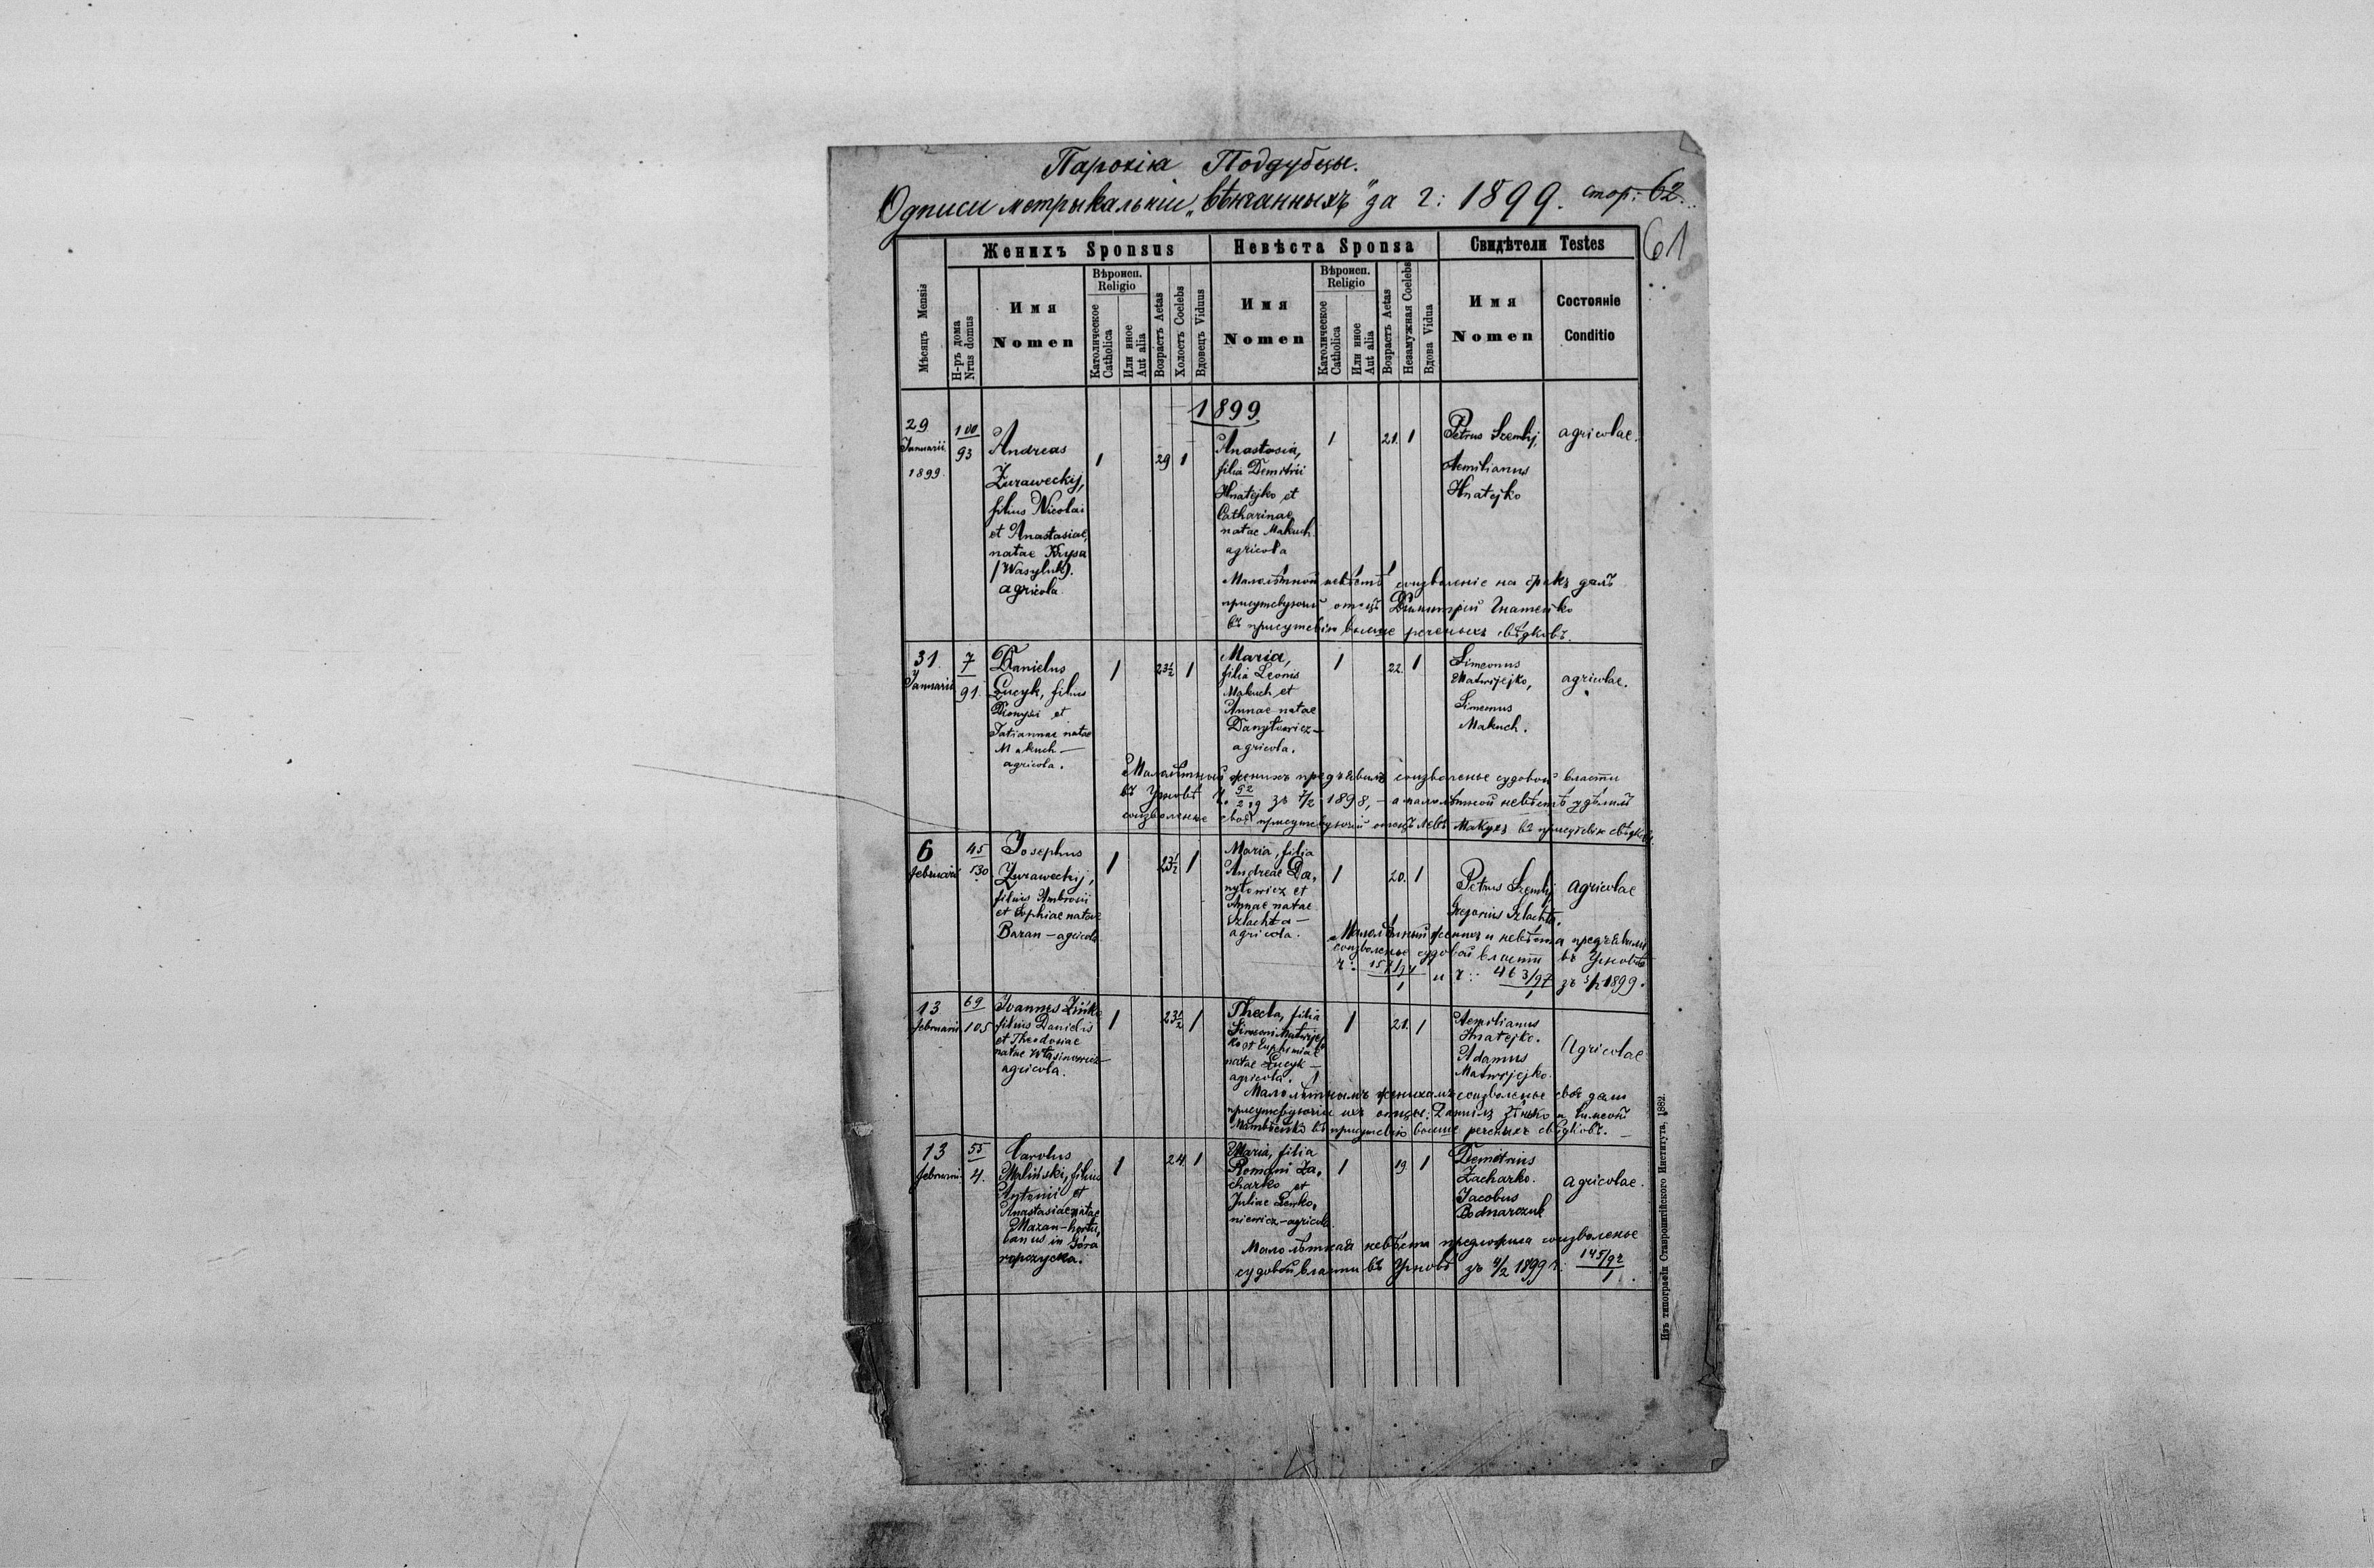 Парохія Поддубцы.
Одписи метрыкальніи „вѣнчанныхъ" за г: 1899. стор: 62.
61
Женихъ Sponsus
Невѣста Sponsa
Свидѣтели Testes
Мѣсяцъ Mensis
Н-ръ дома
Nrus domus
Имя
Nomen
Вѣроисп.
Religio
Католическое
Catholica
Или иное
Aut alia
Возрастъ Aetas
Холостъ Coelebs
Вдовецъ Viduus
Имя
Nomen
Вѣроисп.
Religio
Католическое
Catholica
Или иное
Aut alia
Возрастъ Aetas
Незамужная Coelebs
Вдова Vidua
Имя
Nomen
Состояніе
Conditio
1899
29
Januarii
1899.
100
93
Andreas
Żuraweckij,
filius Nicolai
et Anastasiae,
natae Krysa
(Wasyluk).
agricola.
1
29
1
Anastasia,
filia Demitrii
Hnatejko et
Catharinae,
natae Makuch.
agricola
1
21.
1
Petrus Szemlij,
Aemilianus
Hnatejko
agricolae.
Малолѣтной невѣстѣ соизволеніе на бракъ далъ
присутствуючій отецъ Димитрій Гнатейко
въ присутствію выше реченыхъ свѣдковъ.
31.
Januarii
7
91.
Danielus
Łucyk, filius
Dionysii et
Tatiannae natae
Makuch —
agricola.
1
23½
1
Maria,
filia Leonis
Makuch et
Annae natae
Danyłowicz —
agricola.
1
22.
1
Simeonus
Matwijejko,
Simeonus
Makuch.
agricolae.
Малолѣтный женихъ предъявилъ соизволенье судовой власти
въ Угновѣ Ч. 92 зъ 7/2 1898, — а малолѣтной невѣстѣ удѣлилъ
соизволенье своє присутствуючій отецъ Левъ Макухъ въ присутствію свѣдковъ.
6
februarii
45
130
Josephus
Żuraweckij,
filius Ambrosii
et Sophiae natae
Baran — agricola
1
23½
1
Maria, filia
Andreae Da,
nyłowicz et
Annae natae
Szlachta —
agricola.
1
20.
1
Petrus Szemlij
Gregorius Szlachta.
agricolae
Малолѣтный женихъ и невѣста предъявили
соизволенье судовой власти въ Угновѣ
и ч: 463/97 1899.
13
februarii
69
105
Ivannes Zińko
filius Danielis
et Theodosiae
natae Własinowicz —
agricola.
1
23½
1
Thecla, filia
Simeoni Matwijej
ko et Euphemiae
natae Łucyk —
agricola.
1
21.
1
Aemilianus
Hnatejko.
Adamus
Matwijejko.
Agricolae
Малолѣтнымъ женихамъ соизволенье своє дали
присутствуючіи ихъ отцы: Даніилъ Зѣнько и Симеонъ
Матвіейко въ присутствію выше реченыхъ свѣдковъ. —
13
februarii
55
4.
Carolus
Maliński, filius
Antonii et
Anastasiae natae
Mazan — hortu,
lanus in Góra
ropczycka.
1
24
1
Maria, filia
Romani Za,
charko et
Juliae Lenko,
niewicz — agricola
1
19.
1
Demetrius
Zacharko.
Jacobus
Bodnarczuk
agricolae.
Малолѣтная невѣста предложила соизволенье
судовой власти въ Угновѣ зъ 4/2 1899 ч: 145/92
1
Изъ типографіи Ставропигійского Института, 1882.